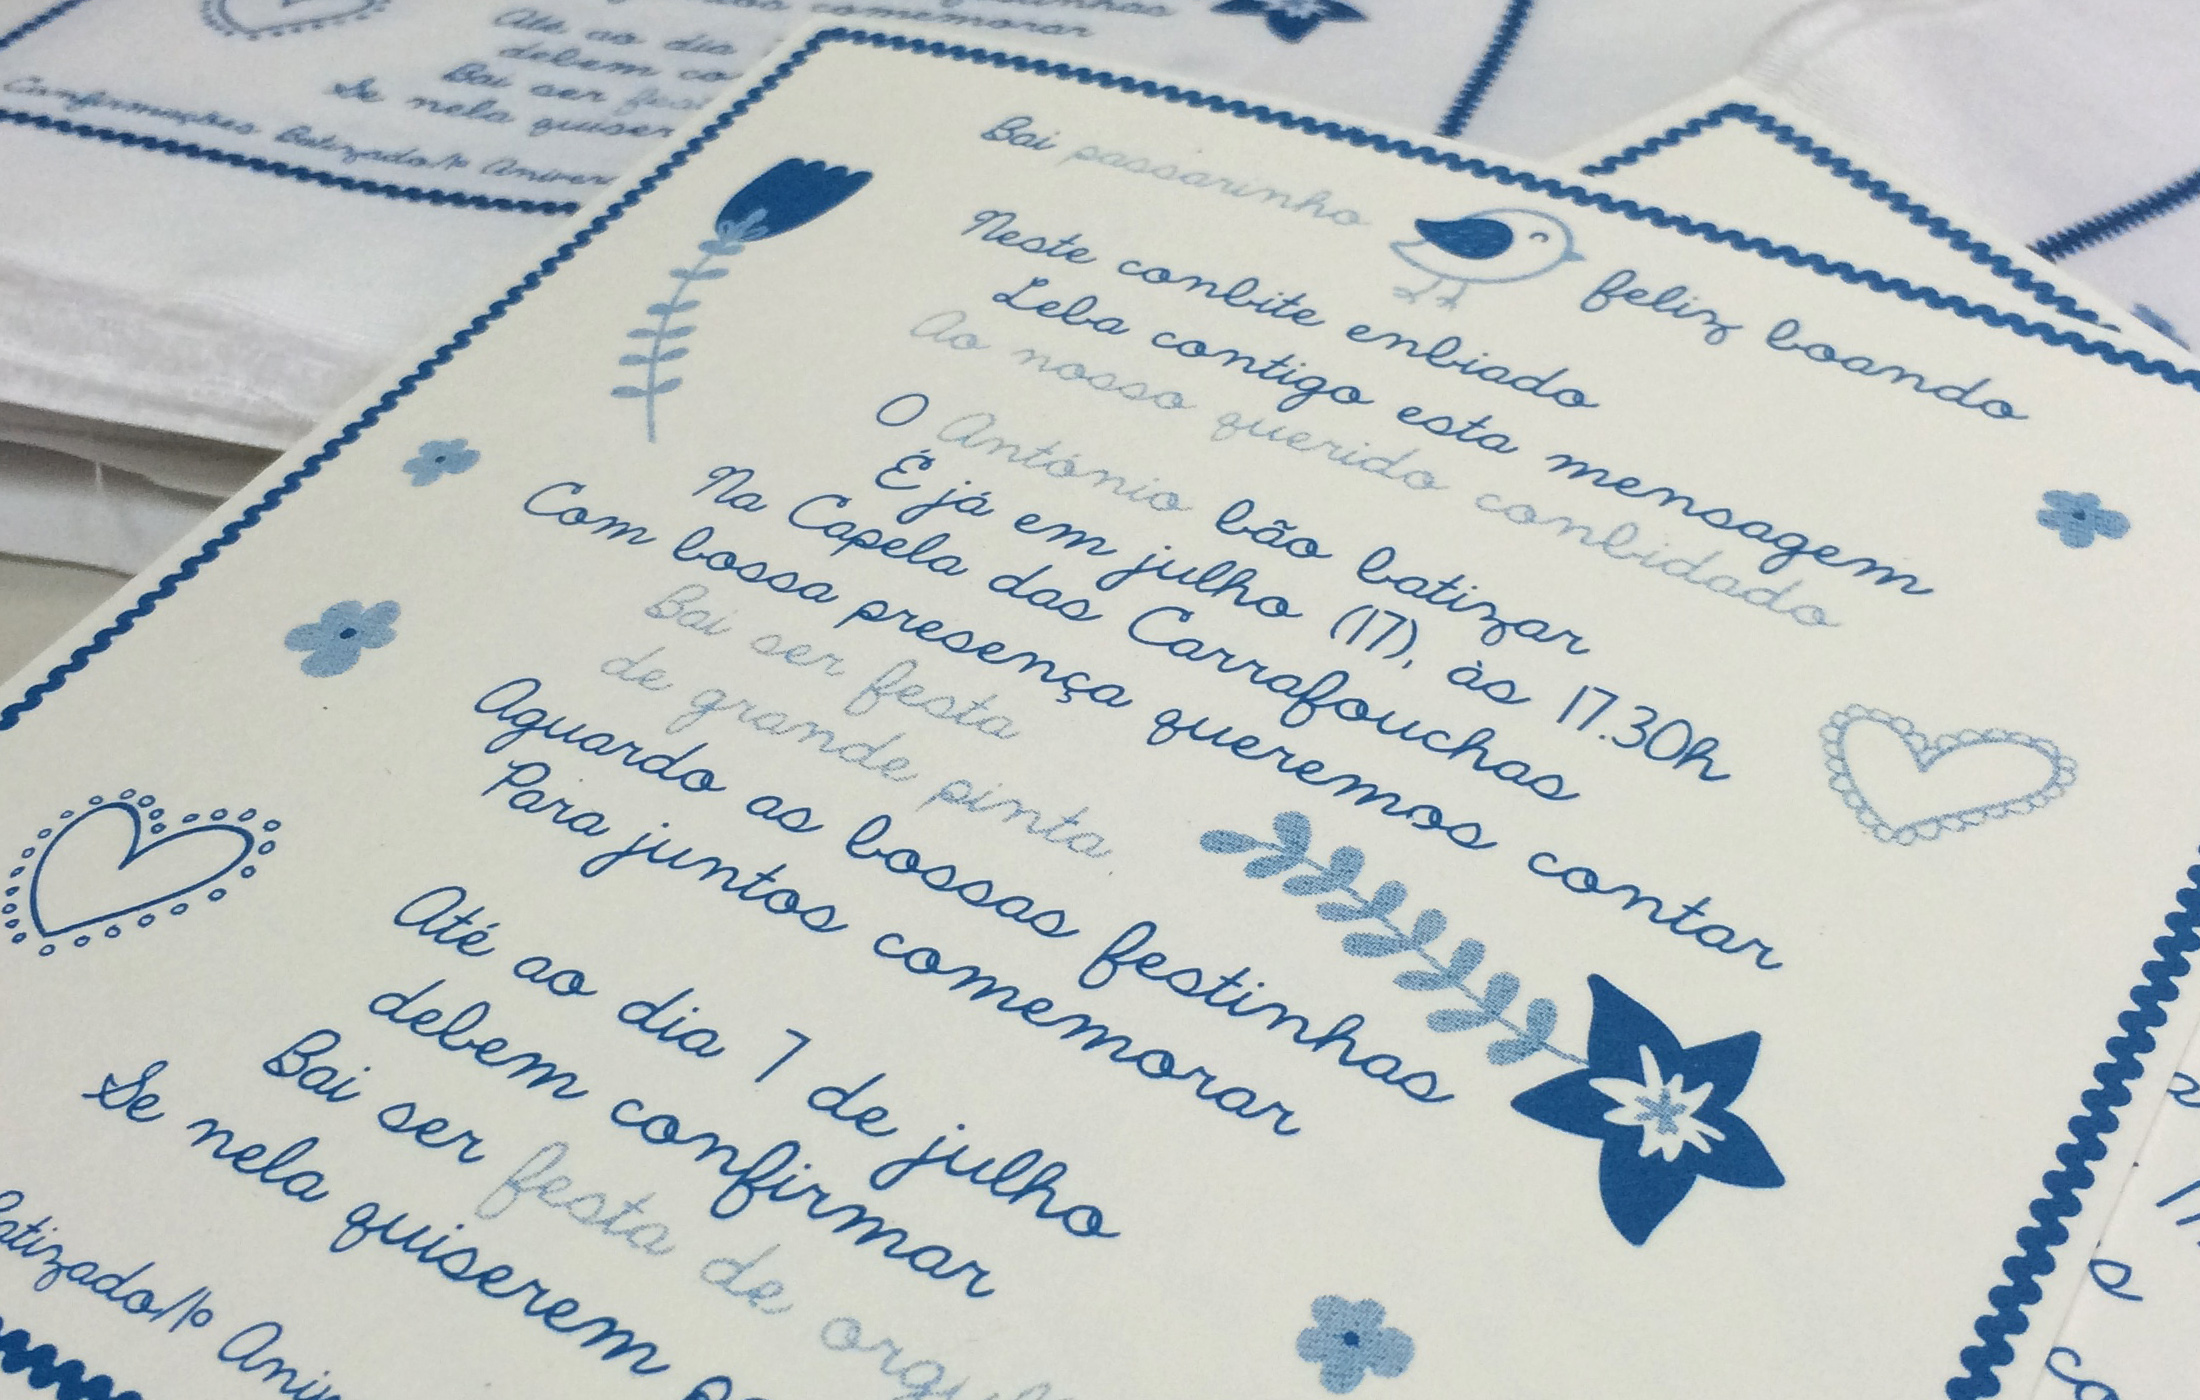 Até ao dia
debem
Bai ser
Se nela quiser
Confirmações Batizado/1º
comemorar
Bai passarinho feliz boando
Neste conbite enbiado
Leba contigo esta mensagem
Ao nosso querido conbidado
O António bão batizar
É já em julho (17), às 17.30h
Na Capela das Carrafouchas
Com bossa presença queremos contar
Bai ser festa
de grande pinta
Aguardo as bossas festinhas
Para juntos comemorar
Até ao dia 7 de julho
debem confirmar
Bai ser festa de
Se nela quiserem